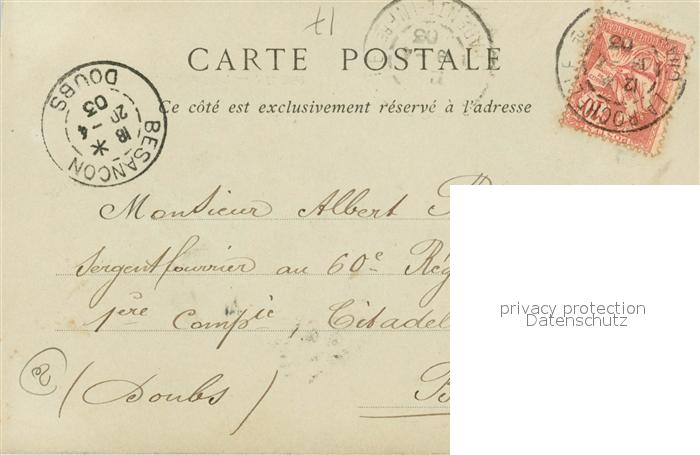 CARTE POSTALE
Ce côté est exclusivement réservé à l'adresse
BESANCON
18 - 4
20
03
DOUBS
Monsieur Albert
Sergent fourrier au 60e Rég
1ère Compie, Citadel
(Doubs) B
privacy protection
Datenschutz